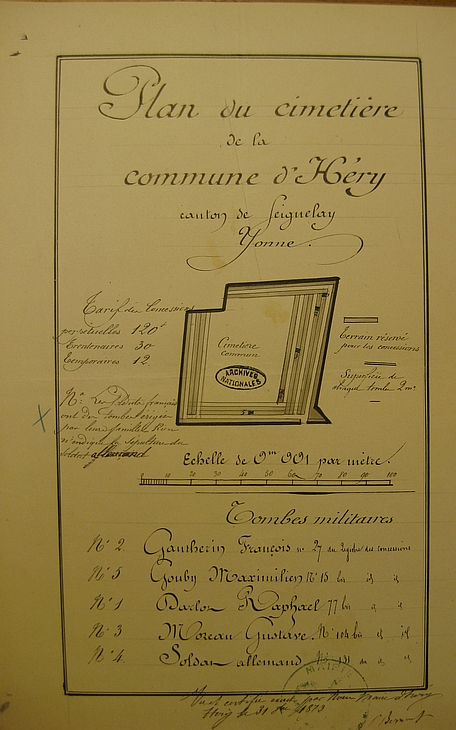 Plan du cimetière
de la
commune d'Héry
canton de Seignelay
Yonne.
Tarif des Concessions
perpétuelles 120f
Trentenaires 30
Temporaires 12
Cimetière
Commun
ARCHIVES
NATIONALES
Terrain réservé
pour les concessions
Superficie de
chaque tombe 2m
soldat allemand
Echelle de 0m 001 par mètre.
0 10 20 30 40 50 60 70 80 90 100
Tombes militaires
N° 2 Gautherin François n° 27 du registre des concessions
N° 5 Gouby Maximilien N° 15 bis id id
N° 1 Darlon Raphael 77 bis id id
N° 3 Moreau Gustave N° 104 bis id id
N° 4 Soldat allemand N° 131 id id
MAIRIE
Vu et certifié exact par Nous Maire d'Héry
Héry le 31 1873